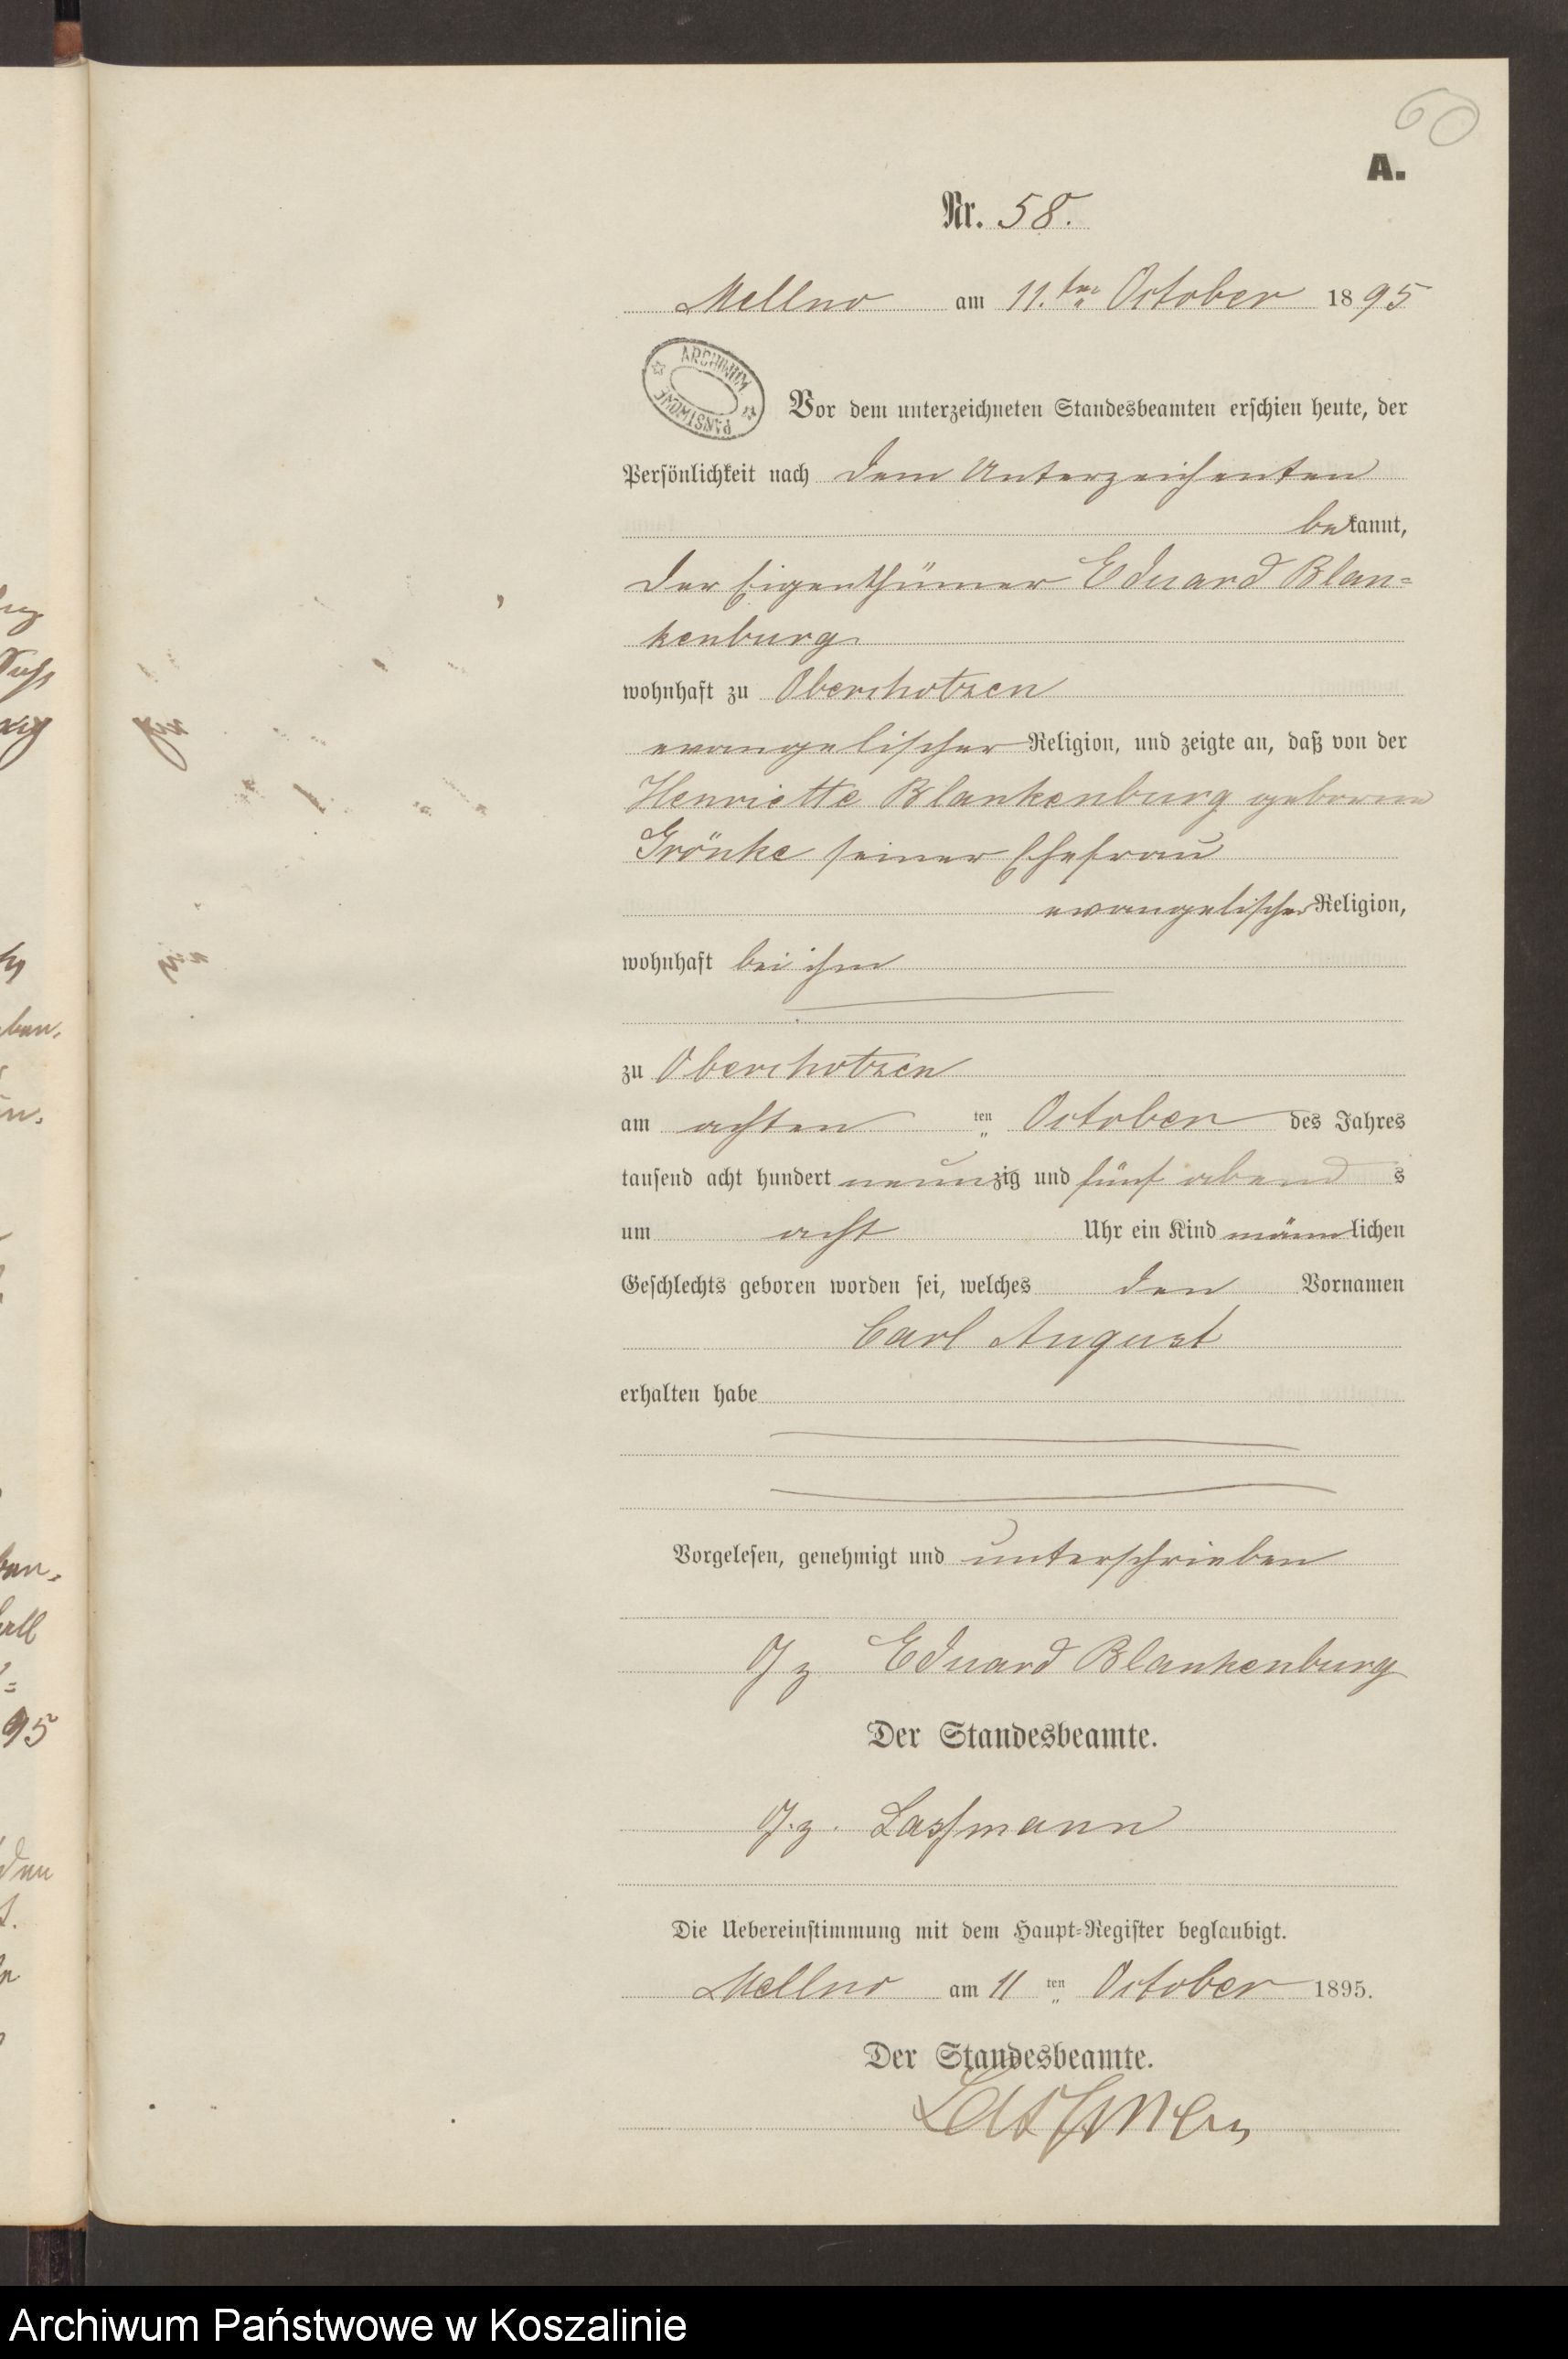 60
A.
Nr. 58.
Mellno am 11. ten October 1895
ARCHIWUM PAŃSTWOWE
Vor dem unterzeichneten Standesbeamten erschien heute, der
Persönlichkeit nach dem Unterzeichenten
bekannt,
der Eigenthümer Eduard Blan=
kenburg
wohnhaft zu Oberchotzen
evangelischer Religion, und zeigte an, daß von der
Henriette Blankenburg geborene
Grönke seiner Ehefrau
evangelischer Religion,
wohnhaft bei ihm
zu Oberchotzen
am achten ten October des Jahres
tausend acht hundert neunzig und fünf abend s
um acht Uhr ein Kind männlichen
Geschlechts geboren worden sei, welches den Vornamen
Carl August
erhalten habe
Vorgelesen, genehmigt und unterschrieben
Gz Eduard Blankenburg
Der Standesbeamte.
G.z. Lassmann
Die Uebereinstimmung mit dem Haupt=Register beglaubigt.
Mellno am 11 ten October 1895.
Der Standesbeamte.
Lassmann
Archiwum Państwowe w Koszalinie